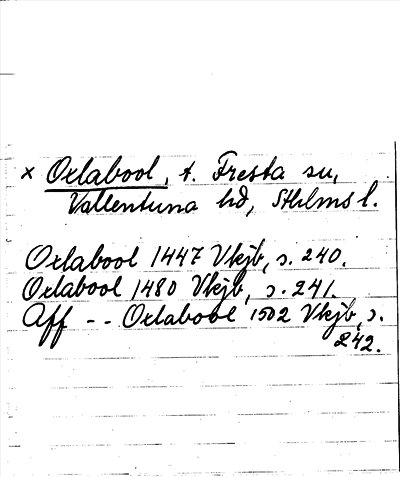 x Oxlabool, t. Fresta sn,
Vallentuna hd, Sthlms l.
Oxlabool 1447 Vkjb, s. 240.
Oxlabool 1480 Vkjb, s. 241.
Aff -- Oxlabool 1502 Vkjb, s.
242.